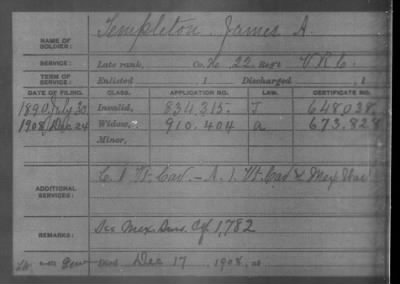 NAME OF SOLDIER: Templeton, James A
SERVICE: Late rank, Co. 22 Reg't V R C.
TERM OF SERVICE: Enlisted 1 Discharged , 1
DATE OF FILING. CLASS. APPLICATION NO. LAW. CERTIFICATE NO.
1890 July 30 Invalid, 834.315 J 648.028
1908 Dec 24 Widow, 910.404 a 673.828
Minor,
ADDITIONAL SERVICES: C. I Vt. Cav. - A. 1, Vt. Cav & Mex War
REMARKS: See Mex. Surv. Cf. 1,782
Died Dec 17 1908, at